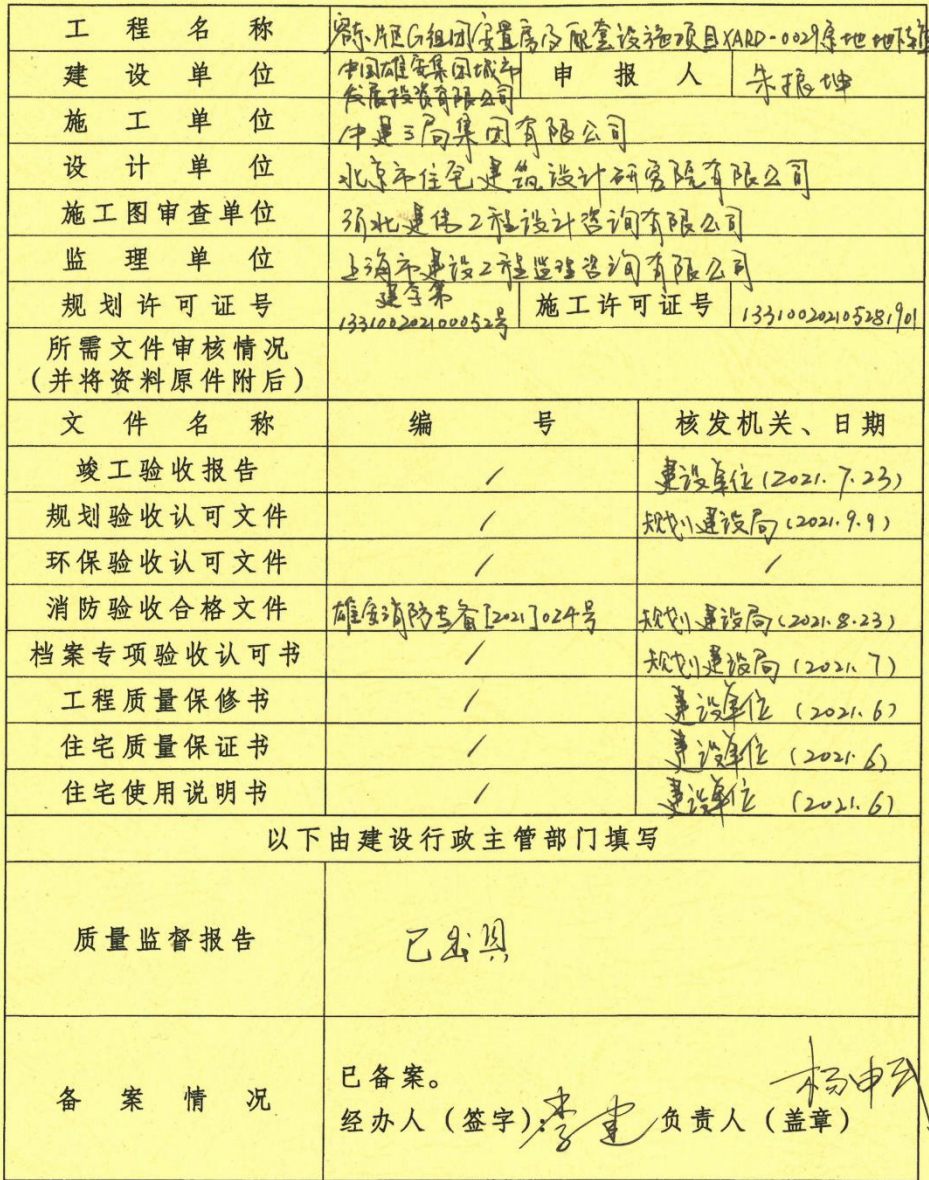 工程名称 容东片区G组团安置房及配套设施项目XARD-0029宗地地下车库
建设单位 中国雄安集团城市
发展投资有限公司 申报人 朱振坤
施工单位 中建三局集团有限公司
设计单位 北京市住宅建筑设计研究院有限公司
施工图审查单位 河北建伟工程设计咨询有限公司
监理单位 上海市建设工程监理咨询有限公司
规划许可证号 建字第
133100202100052号 施工许可证号 133100202105281901
所需文件审核情况
（并将资料原件附后）
文件名称 编号 核发机关、日期
竣工验收报告 / 建设单位(2021.7.23)
规划验收认可文件 / 规划建设局(2021.9.9)
环保验收认可文件 / /
消防验收合格文件 雄安消防专备[2021]024号 规划建设局(2021.8.23)
档案专项验收认可书 / 规划建设局(2021.7)
工程质量保修书 / 建设单位(2021.6)
住宅质量保证书 / 建设单位(2021.6)
住宅使用说明书 / 建设单位(2021.6)
以下由建设行政主管部门填写
质量监督报告 已出具
备案情况 已备案。
经办人（签字）：李建 负责人（盖章）